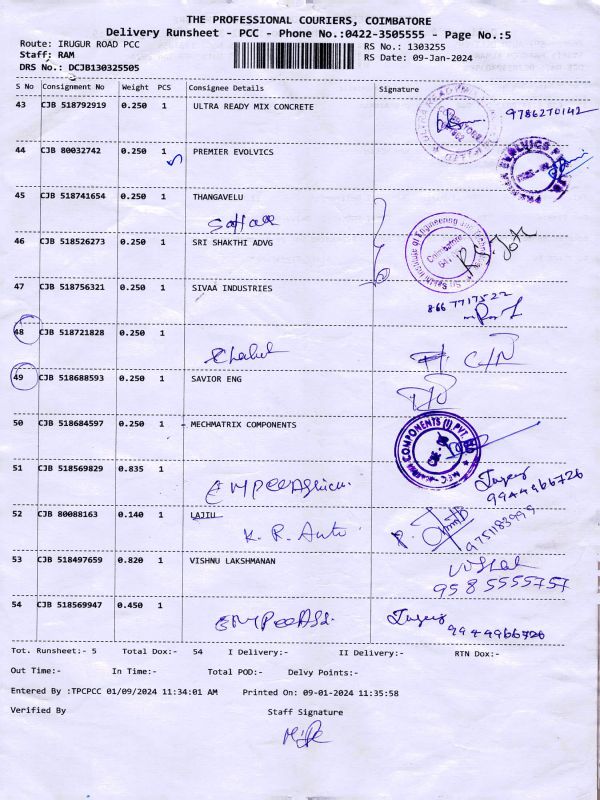 THE PROFESSIONAL COURIERS, COIMBATORE
Delivery Runsheet - PCC - Phone No.:0422-3505555 - Page No.:5
Route: IRUGUR ROAD PCC RS No.: 1303255
Staff: RAM RS Date: 09-Jan-2024
DRS No.: DCJB130325505
S No Consignment No Weight PCS Consignee Details Signature
43 CJB 518792919 0.250 1 ULTRA READY MIX CONCRETE 9786270142
44 CJB 80032742 0.250 1 PREMIER EVOLVICS
45 CJB 518741654 0.250 1 THANGAVELU
46 CJB 518526273 0.250 1 SRI SHAKTHI ADVG
47 CJB 518756321 0.250 1 SIVAA INDUSTRIES
866 7717522
48 CJB 518721828 0.250 1
49 CJB 518688593 0.250 1 SAVIOR ENG
50 CJB 518684597 0.250 1 MECHMATRIX COMPONENTS
COMPONENTS (I) PVT
51 CJB 518569829 0.835 1
9944966726
52 CJB 80088163 0.140 1 LAJIU
K. R. Auto
53 CJB 518497659 0.820 1 VISHNU LAKSHMANAN
9585555757
54 CJB 518569947 0.450 1
9944966726
Tot. Runsheet:- 5 Total Dox:- 54 I Delivery:- II Delivery:- RTN Dox:-
Out Time:- In Time:- Total POD:- Delvy Points:-
Entered By :TPCPCC 01/09/2024 11:34:01 AM Printed On: 09-01-2024 11:35:58
Verified By Staff Signature